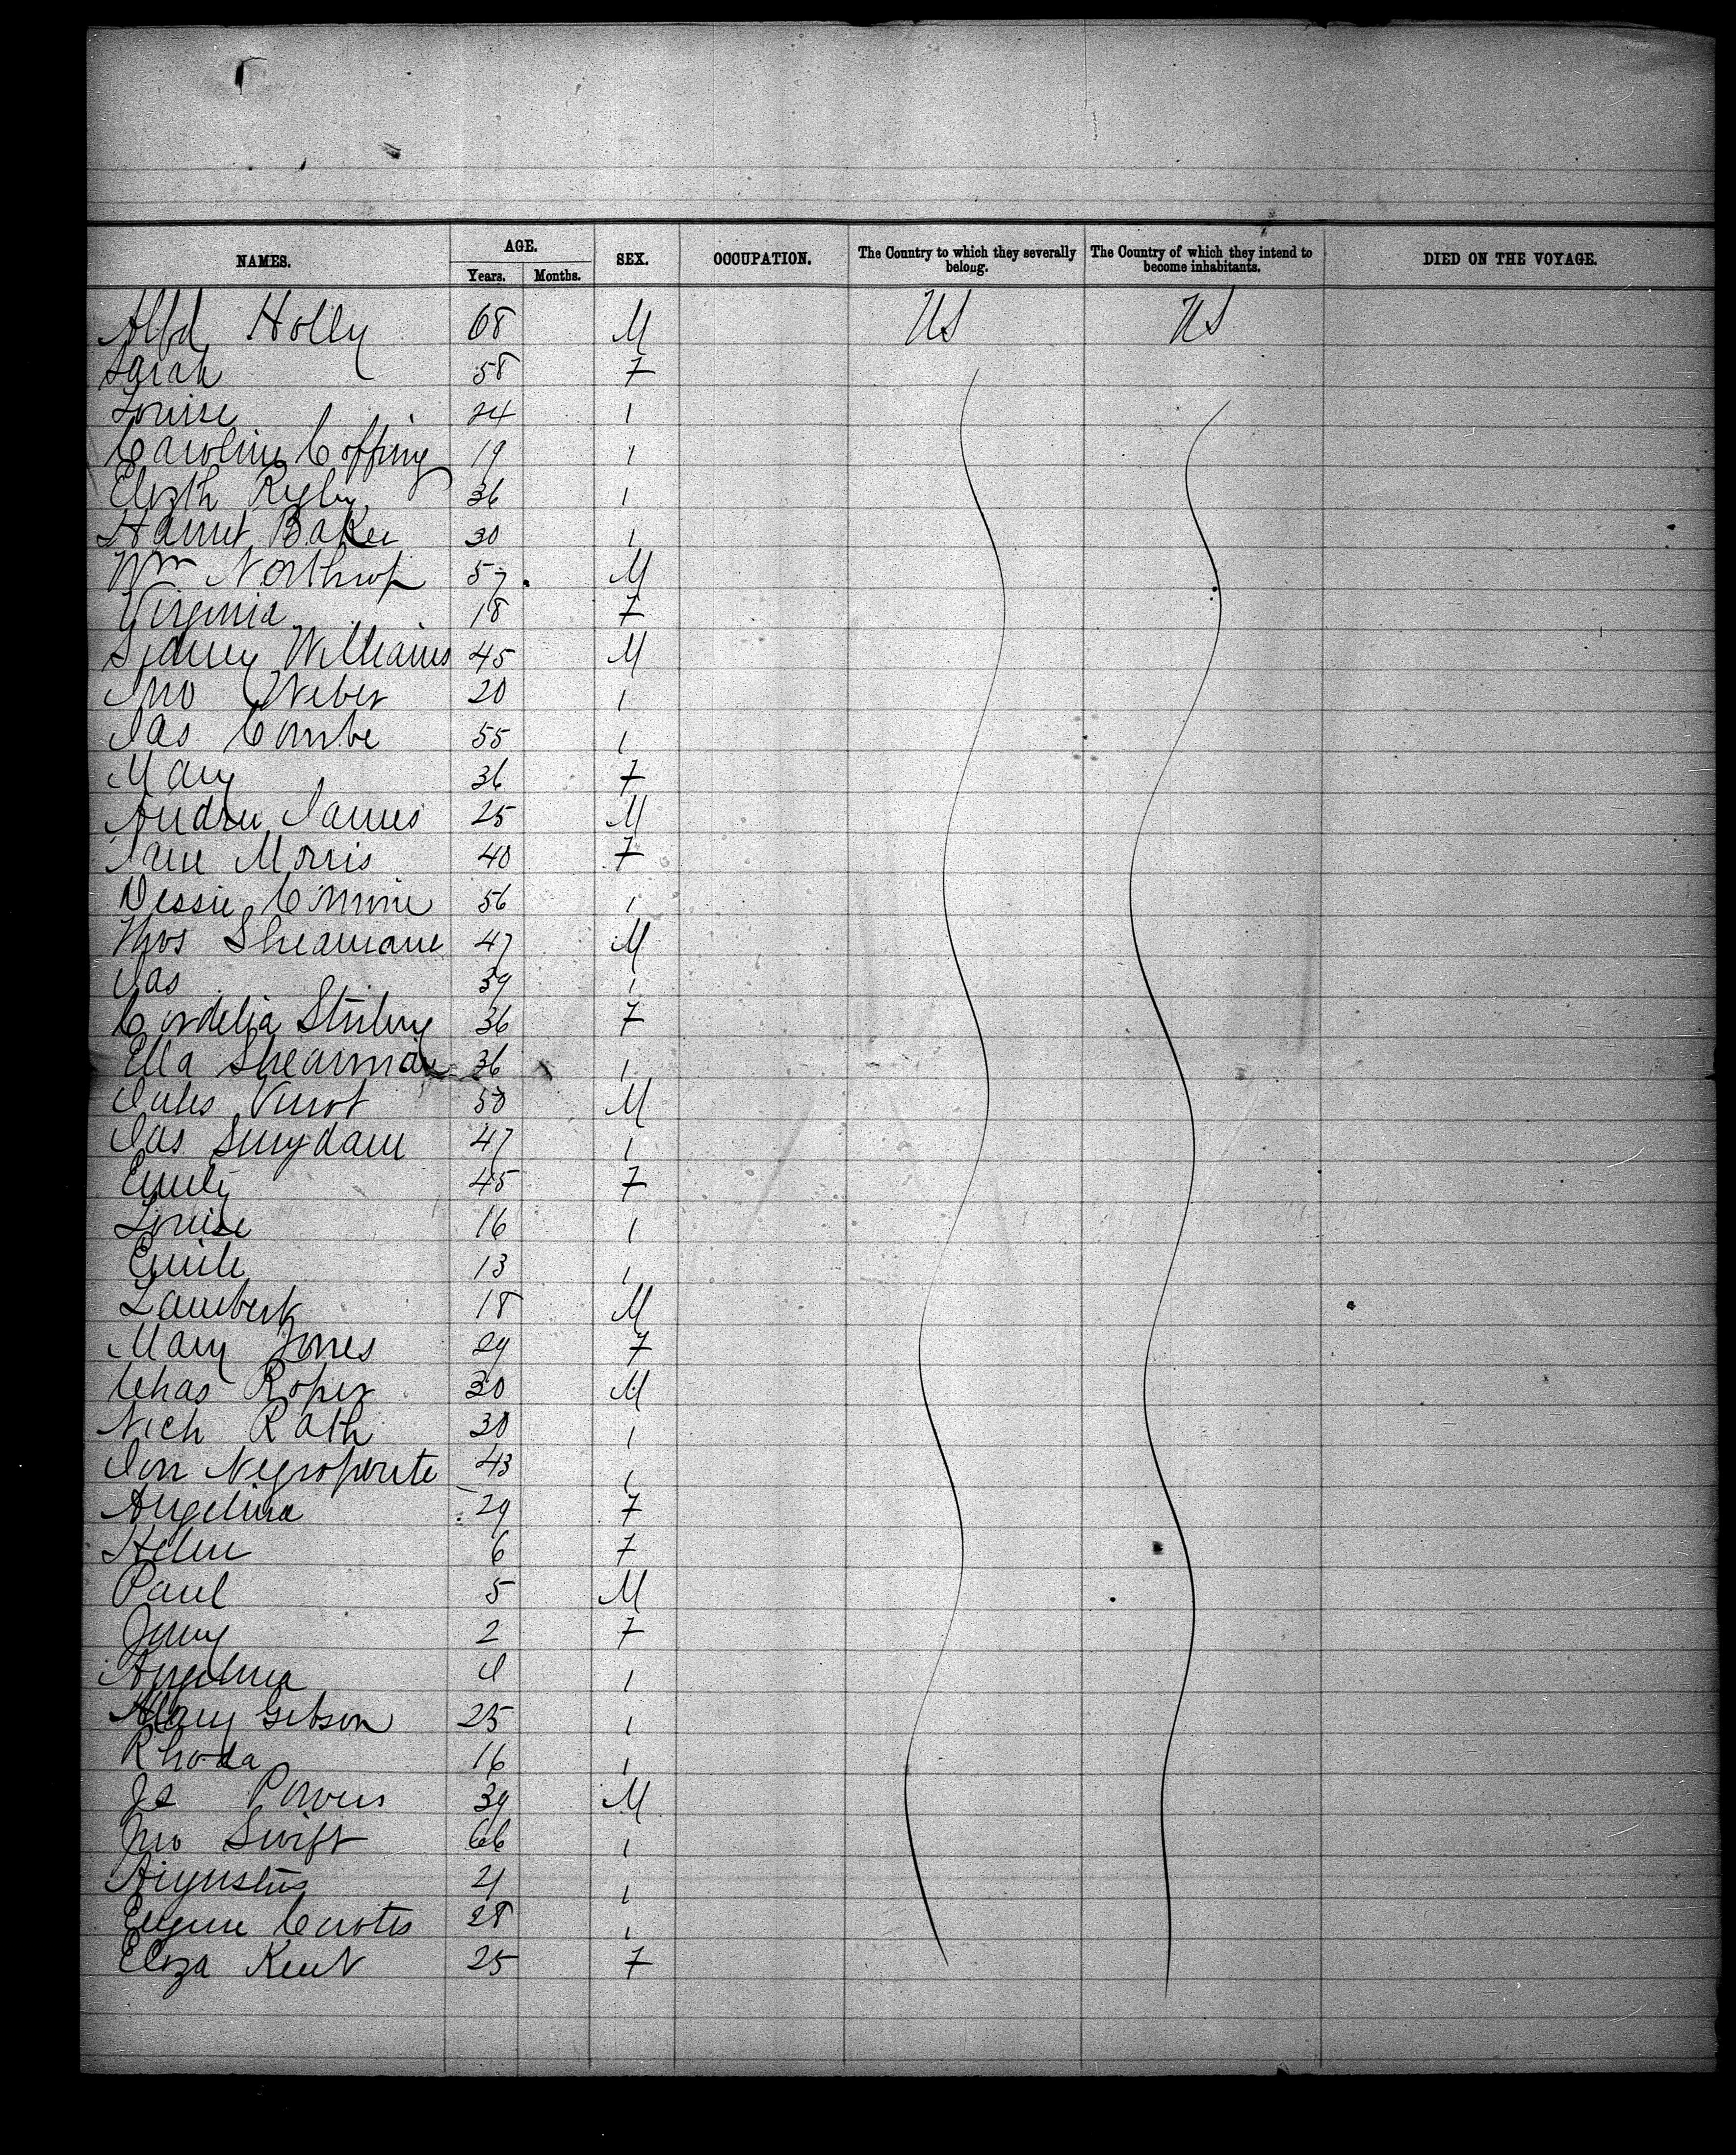 NAMES. AGE. SEX. OCCUPATION. The Country to which they severally belong. The Country of which they intend to become inhabitants. DIED ON THE VOYAGE.
Years. Months.
Alfd Holly 68 M US US
Sarah 58 F
Louise 24 1
Caroline Coffing 19 1
Elizth Rigby 36 1
Harriet Baker 30 1
Wm Northrop 57 M
Virginia 18 F
Sidney Williams 45 M
Jno Weber 20 1
Jas Combe 55 1
Mary 36 F
Andrew James 25 M
Jane Morris 40 F
Dessie 56 1
Thos 47 M
Jas 39 1
Cordelia 36 F
Ella Shearman 36 1
Jules Virot 50 M
Jas Suydam 47 1
Emily 45 F
Louise 16 1
Emile 13 1
Lambert 18 M
Mary Jones 29 F
Chas Roper 30 M
Nich Rath 30 1
Jon Negroponte 43 1
Angelina 29 F
Helen 6 F
Paul 5 M
Jenny 2 F
Angelina 1
Mary Gibson 25 1
Rhoda 16 1
Js Powers 39 M
Jno Swift 66 1
Augustus 21 1
Eugene 28 1
Eliza Kent 25 F